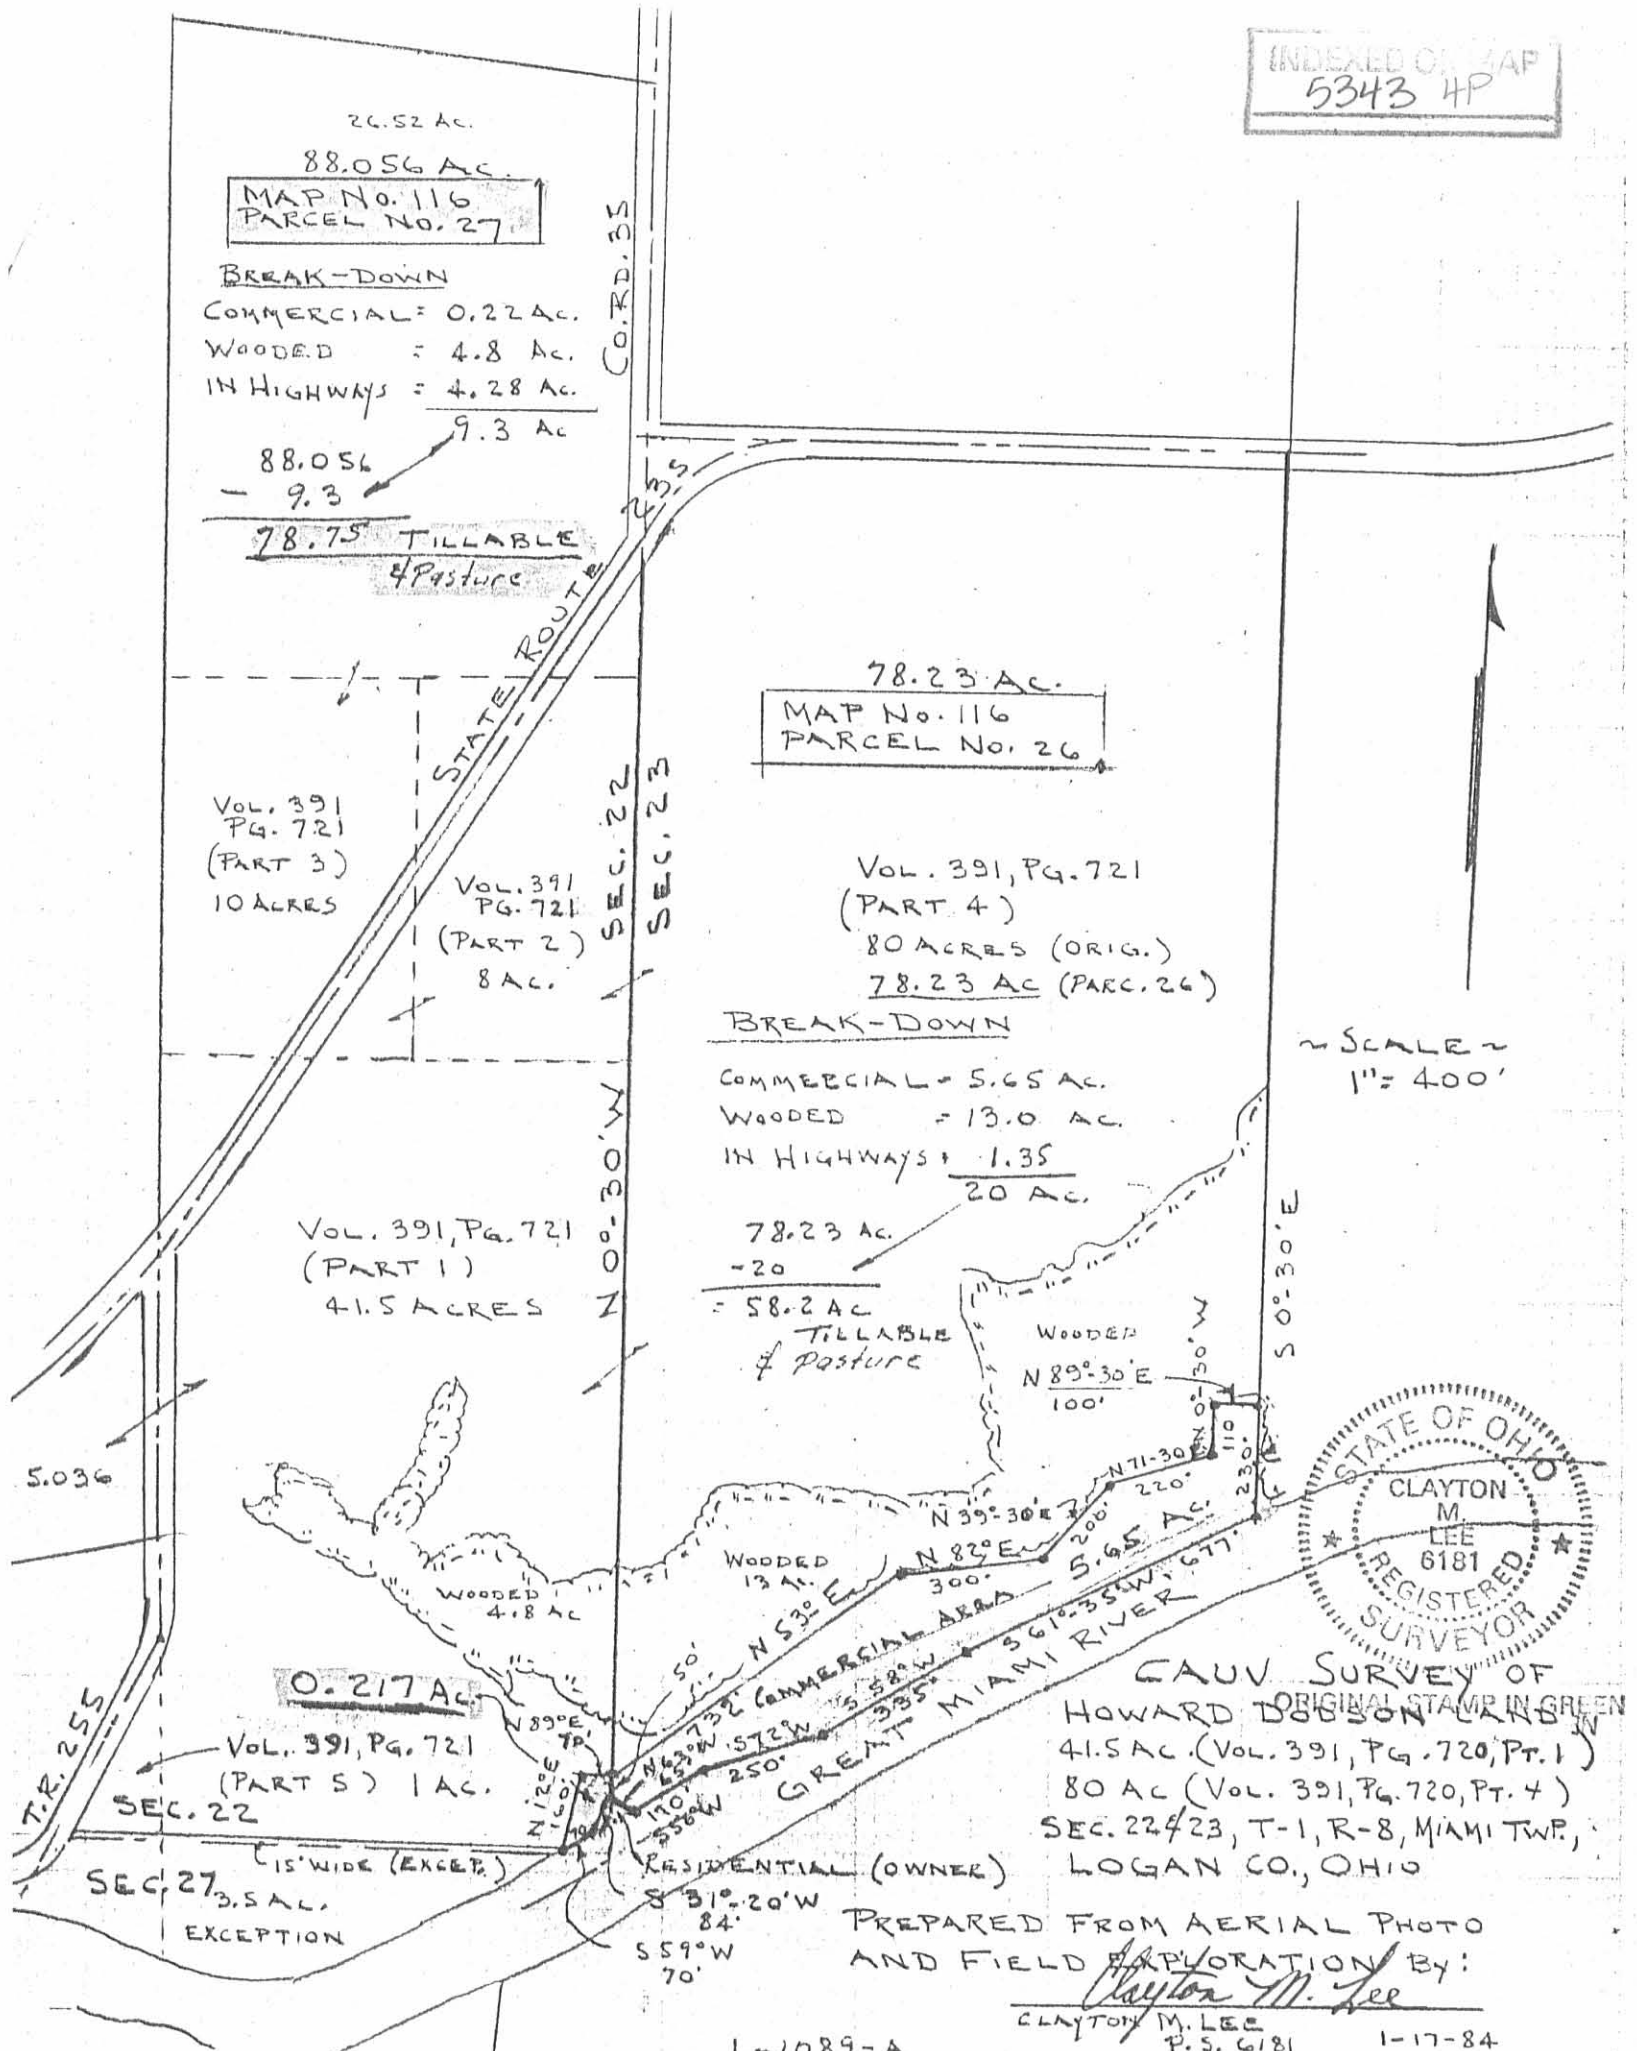 INDEXED ON MAP
5343 4P
26.52 AC.
88.056 AC.
MAP NO. 116
PARCEL NO. 27
BREAK-DOWN
COMMERCIAL = 0.22 AC.
WOODED = 4.8 AC.
IN HIGHWAYS = 4.28 AC.
9.3 AC
88.056
- 9.3
78.75 TILLABLE
& Pasture
CO. RD. 35
STATE ROUTE 235
78.23 AC.
MAP NO. 116
PARCEL NO. 26
VOL. 391
PG. 721
(PART 3)
10 ACRES
VOL. 391
PG. 721
(PART 2)
8 AC.
SEC. 22
SEC. 23
VOL. 391, PG. 721
(PART 4)
80 ACRES (ORIG.)
78.23 AC (PARC. 26)
BREAK-DOWN
COMMERCIAL = 5.65 AC.
WOODED = 13.0 AC.
IN HIGHWAYS = 1.35
20 AC.
78.23 AC.
-20
= 58.2 AC
TILLABLE
& Pasture
~ SCALE ~
1" = 400'
N 0°-30' W
S 0°-30' E
VOL. 391, PG. 721
(PART 1)
41.5 ACRES
WOODED
N 89°-30' E
100'
N 0°-30' W
110
230'
N 71-30 E
220'
N 39°-30 E
200'
N 82° E
300'
N 53° E
732
50'
5.036
WOODED
4.8 AC
WOODED
13 AC.
COMMERCIAL AREA 5.65 AC.
S 61°-35' W, 677'
S 58° W
335'
S 72° W
250'
N 63° W
65'
170'
S 56° W
GREAT MIAMI RIVER
0.217 AC.
N 89° E
70'
N 12° E
160'
VOL. 391, PG. 721
(PART 5) 1 AC.
SEC. 22
T.R. 255
15' WIDE (EXCEP.)
SEC. 27
3.5 AC.
EXCEPTION
RESIDENTIAL (OWNER)
S 31°-20' W
84'
S 59° W
70'
STATE OF OHIO
CLAYTON
M.
LEE
6181
REGISTERED
SURVEYOR
CAUV SURVEY OF
ORIGINAL STAMP IN GREEN
HOWARD DODSON LAND IN
41.5 AC. (VOL. 391, PG. 720, PT. 1)
80 AC (VOL. 391, PG. 720, PT. 4)
SEC. 22 & 23, T-1, R-8, MIAMI TWP.,
LOGAN CO., OHIO
PREPARED FROM AERIAL PHOTO
AND FIELD EXPLORATION BY:
Clayton M. Lee
CLAYTON M. LEE
P.S. 6181 1-17-84